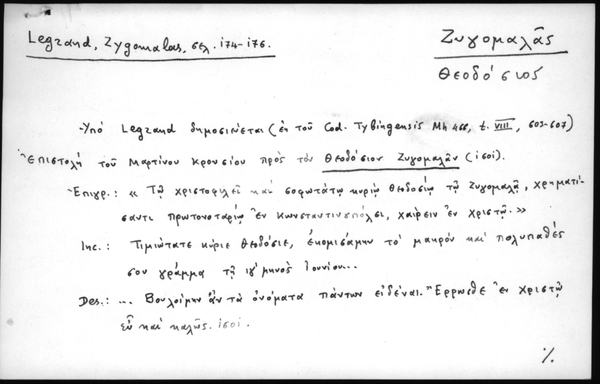 Legrand, Zygomalas, σελ. 174-176.
Ζυγομαλᾶς
Θεοδόσιος
-Ὑπό Legrand δημοσιεύεται (ἐκ τοῦ Cod. Tybingensis Mh 466, t. VIII, 603-607)
Ἐπιστολή τοῦ Μαρτίνου Κρουσίου πρὸς τὸν Θεοδόσιον Ζυγομαλᾶν (1601).
Ἐπιγρ.: « Τῷ χριστοφιλεῖ καὶ σοφωτάτῳ κυρίῳ Θεοδοσίῳ τῷ Ζυγομαλᾷ, χρηματί-
σαντι πρωτονοταρίῳ ἐν Κωνσταντινουπόλει, χαίρειν ἐν Χριστῷ. »
Inc.: Τιμιώτατε κύριε Θεοδόσιε, ἐκομισάμην τό μακρόν καί πολυπαθές
σου γράμμα τῇ ιγ' μηνός Ιουνίου...
Des.: ... Βουλοίμην ἄν τὰ ὀνόματα πάντων εἰδέναι. Ἔρρωσθε ἐν Χριστῷ
εὖ καί καλῶς. 1601.
%